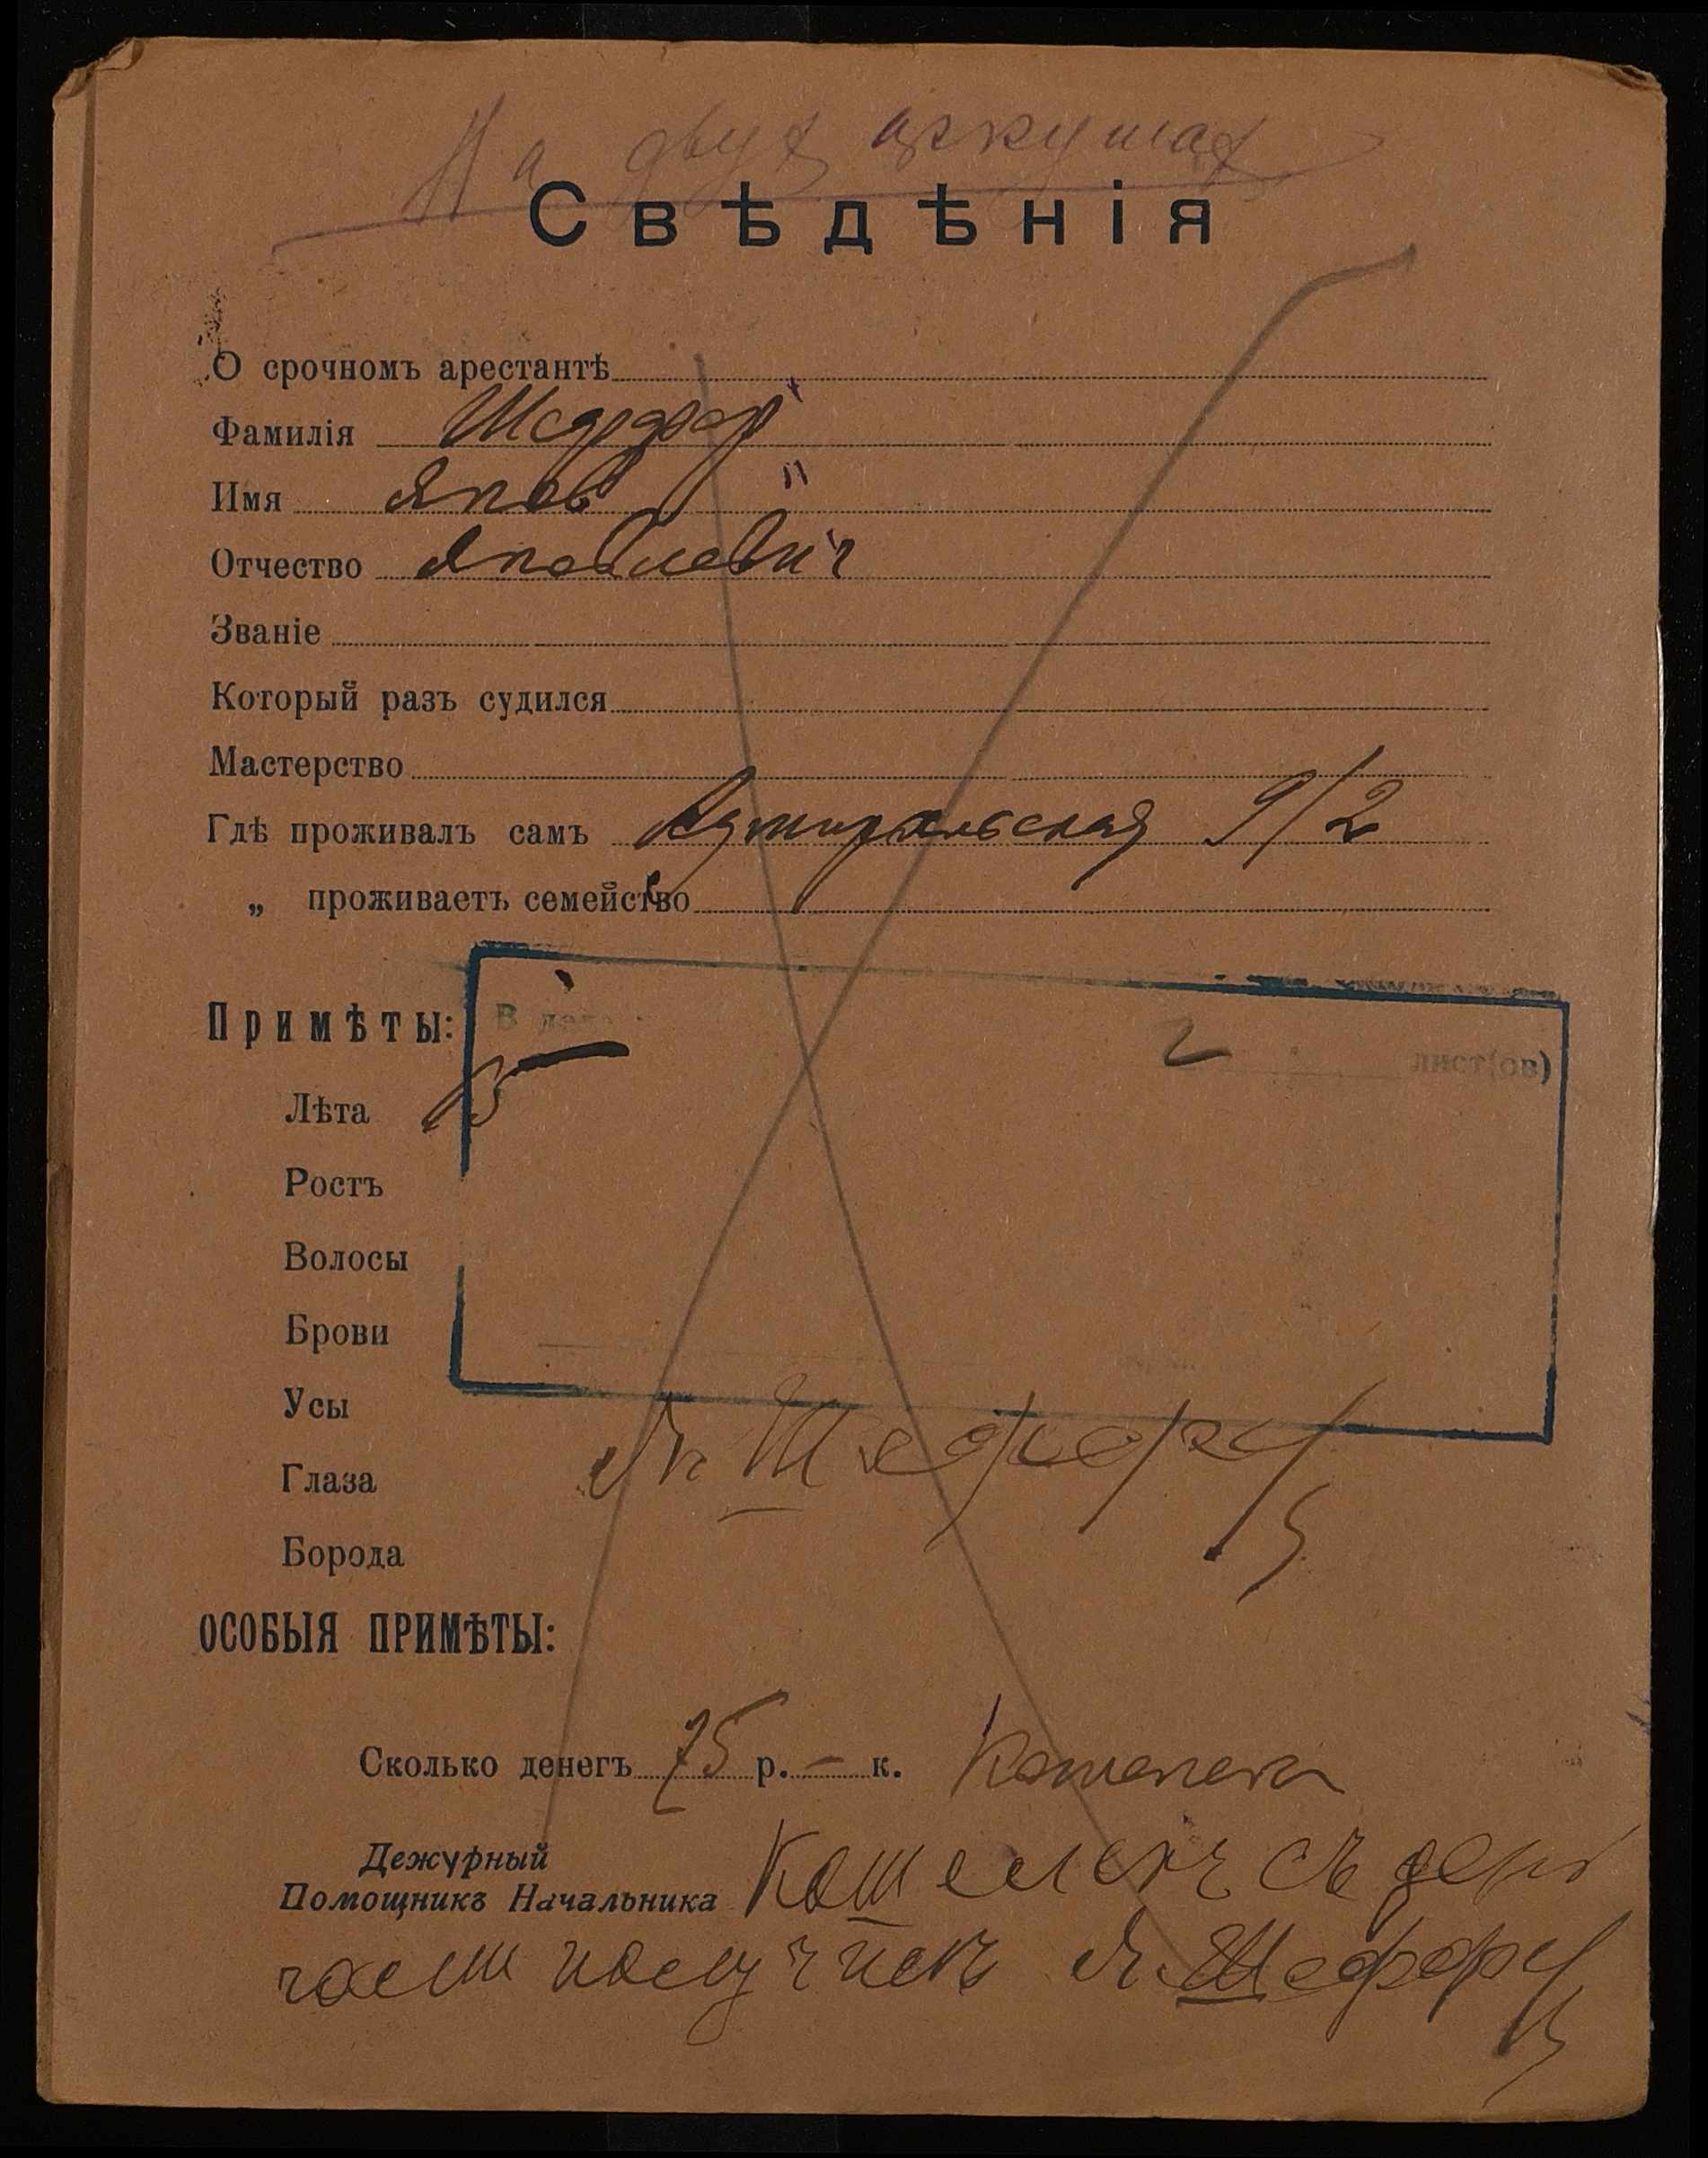 На двух аркушах
Свѣдѣнія
О срочномъ арестантѣ
Фамилія Шеффер
Имя Яков
Отчество Яковлевич
Званіе
Который разъ судился
Мастерство
Гдѣ проживалъ самъ Адмиральская 9/2
„ проживаетъ семейство
Примѣты:
В деле 2 лист(ов)
Лѣта
Ростъ
Волосы
Брови
Усы
Глаза
Як Шефферъ
Борода
ОСОБЫЯ ПРИМѢТЫ:
Сколько денегъ 75 р. – к. Кошелек
Дежурный
Помощникъ Начальника Кошелекъ съ день
гами получилъ Я. Шефферъ